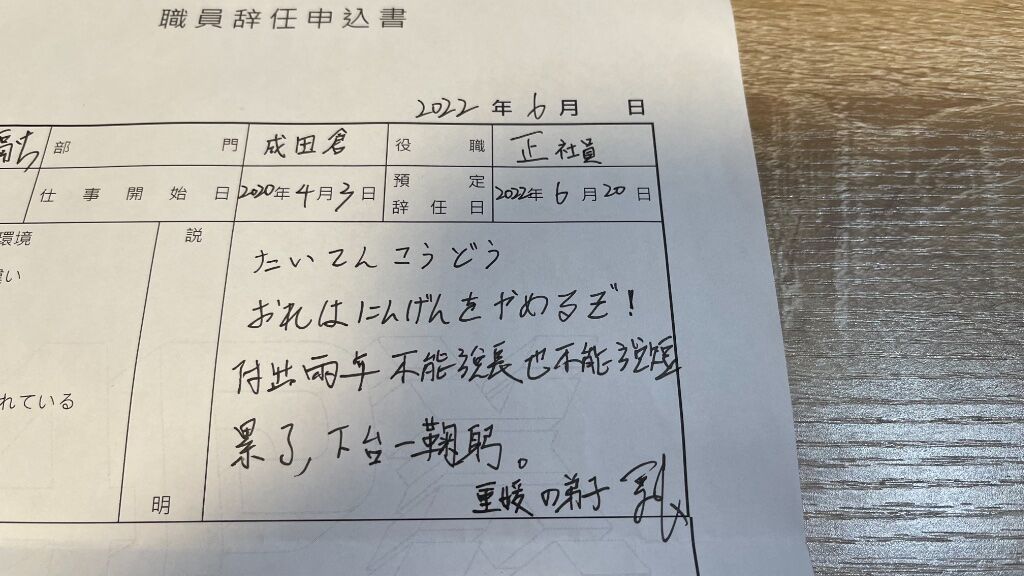 職員辞任申込書
2022 年 6 月 日
部門 成田倉 役職 正社員
仕事開始日 2020年 4月 3日 預定辞任日 2022年 6月 20日
環境 説明
い
れている
たいてんこうどう
おれはにんげんをやめるぞ!
付出兩年 不能說長也不能說短
累了,下台一鞠躬。
の弟子